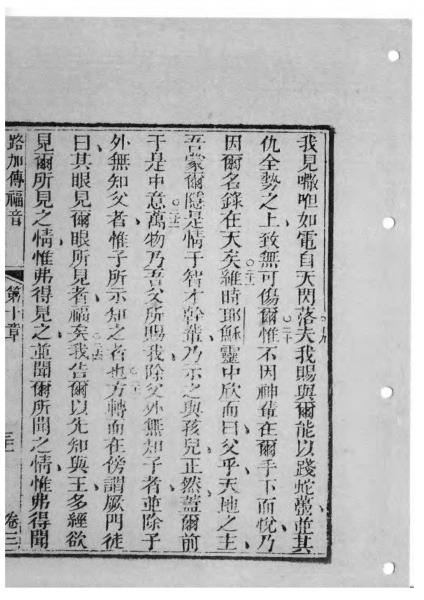 我見嗽呾如電自天閃落夫我賜與爾能以踐蛇蠆並其
仇全勢之上致無可傷爾惟不因神輩在爾手下而悅乃
因爾名錄在天矣維時耶穌靈中欣而曰父乎天地之主
吾蒙爾隱是情于智才幹輩乃示之與孩兒正然蓋爾前
于是中意萬物乃吾父所賜我除父外無知子者並除子
外無知父者惟子所示知之者也方轉而在傍謂厥門徒
曰其眼見爾眼所見者福矣我告爾以先知與王多經欲
見爾所見之情惟弗得見之並聞爾所聞之情惟弗得聞
路加傳福音 第十章 卷三